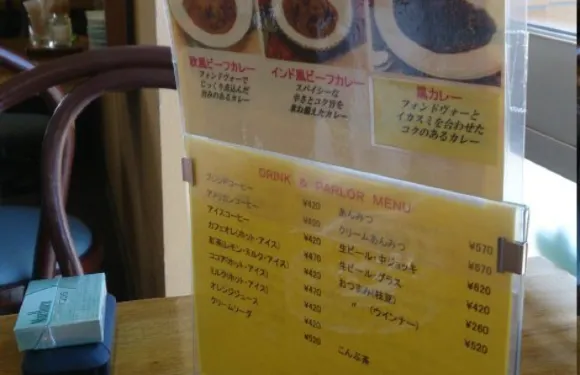 欧風ビーフカレー
フォンドヴォーで
じっくり煮込んだ
旨みのあるカレー
インド風ビーフカレー
スパイシーな
辛さとコク旨を
兼ね備えたカレー
黒カレー
フォンドヴォーと
イカスミを合わせた
コクのあるカレー
DRINK & PARLOR MENU
ブレンドコーヒー ¥420
アメリカンコーヒー
アイスコーヒー
カフェオレ(ホット・アイス)
紅茶(レモン・ミルク・アイス) ¥470
ココア(ホット・アイス)
ミルク(ホット・アイス) ¥470
オレンジジュース ¥420
クリームソーダ ¥520
あんみつ ¥570
クリームあんみつ ¥670
生ビール・中ジョッキ ¥620
生ビール・グラス ¥420
おつまみ(枝豆) ¥260
〃 (ウインナー) ¥520
こんぶ茶
Marlboro